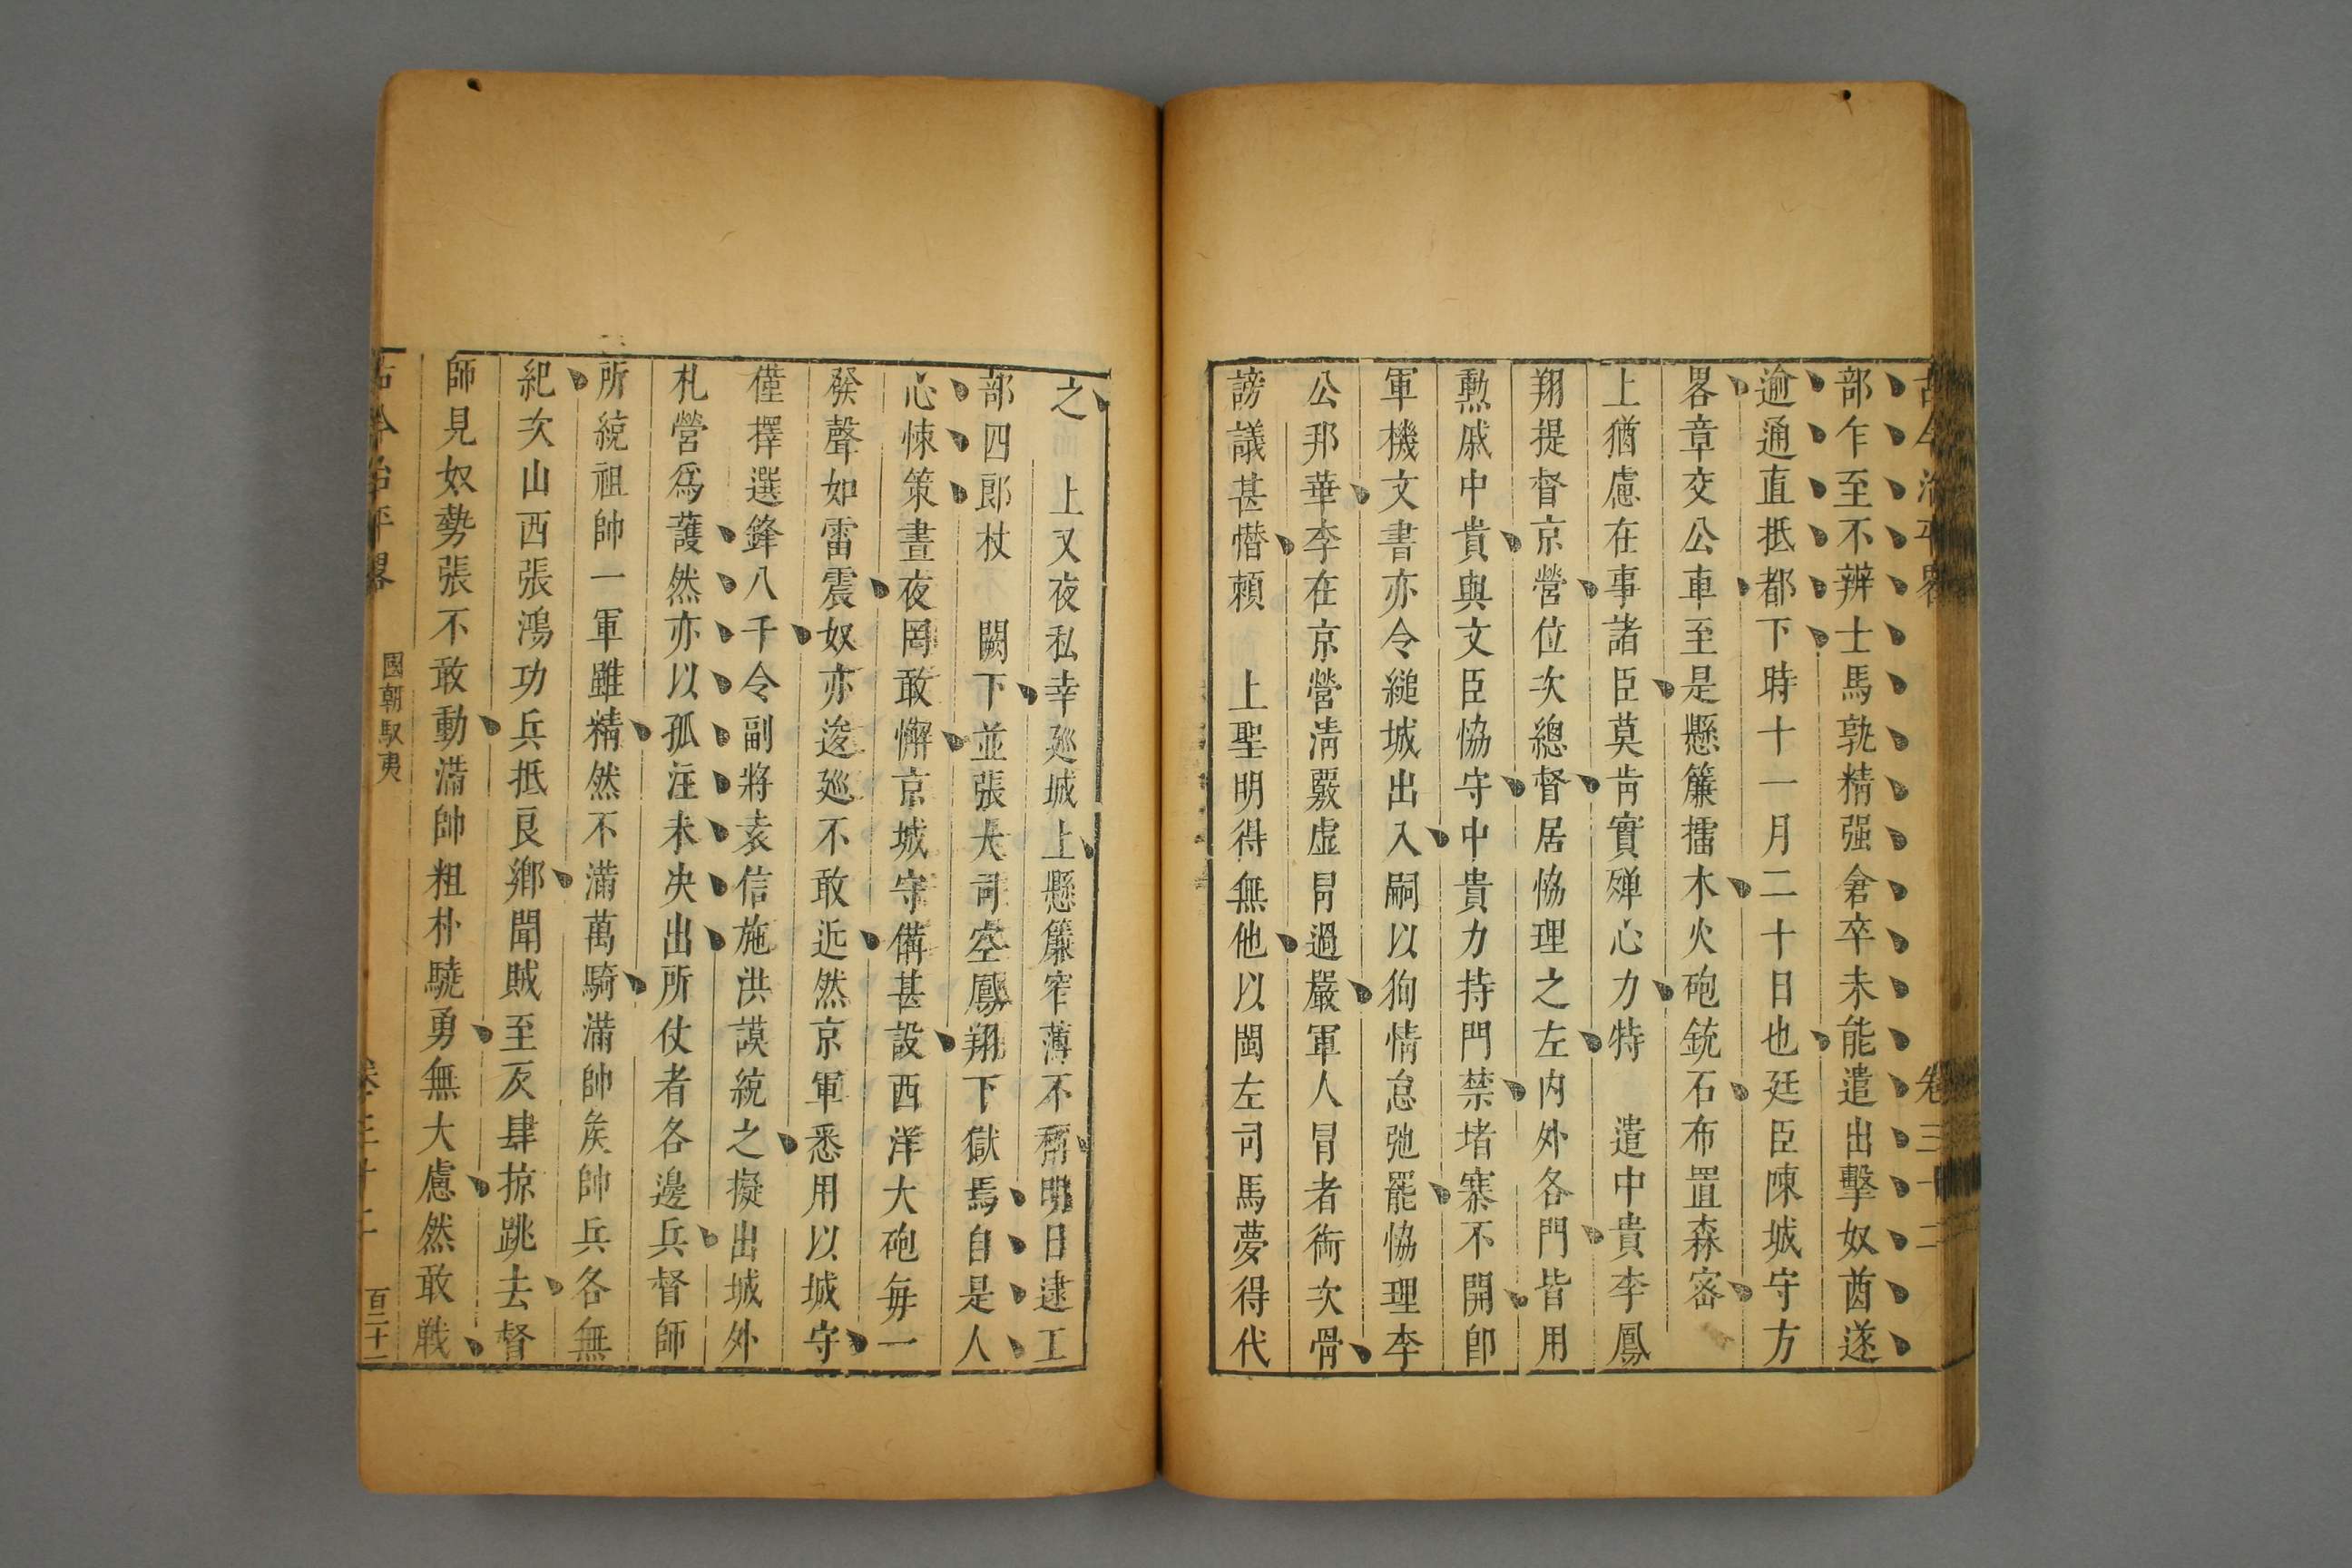 古今治平畧 卷三十二
部乍至不辨士馬孰精强倉卒未能遣出擊奴酋遂
逾通直抵都下時十一月二十日也廷臣陳城守方
畧章交公車至是懸簾擂木火砲銃石布置森密
上猶慮在事諸臣莫肯實殫心力特 遣中貴李鳳
翔提督京營位次總督居恊理之左内外各門皆用
勲戚中貴與文臣恊守中貴力持門禁堵寨不開卽
軍機文書亦令縋城出入嗣以狥情怠弛罷恊理李
公邦華李在京營淸覈虛冐過嚴軍人冒者銜次骨
謗議甚憯頼 上聖明得無他以閩左司馬夢得代
之 上又夜私幸廵城上懸簾窄薄不稱明日逮工
部四郎杖 闕下並張大司空鳳翔下獄焉自是人
心悚策晝夜罔敢懈京城守備甚設西洋大砲每一
發聲如雷震奴亦逡廵不敢近然京軍悉用以城守
僅擇選鋒八千令副將袁信施洪謨統之擬出城外
札營爲護然亦以孤注未决出所仗者各邊兵督師
所統祖帥一軍雖精然不滿萬騎滿帥矦帥兵各無
紀次山西張鴻功兵抵良鄉聞賊至反肆掠跳去督
師見奴勢張不敢動滿帥粗朴驍勇無大慮然敢戰
古今治平畧 國朝馭夷 卷三十二 百二十一